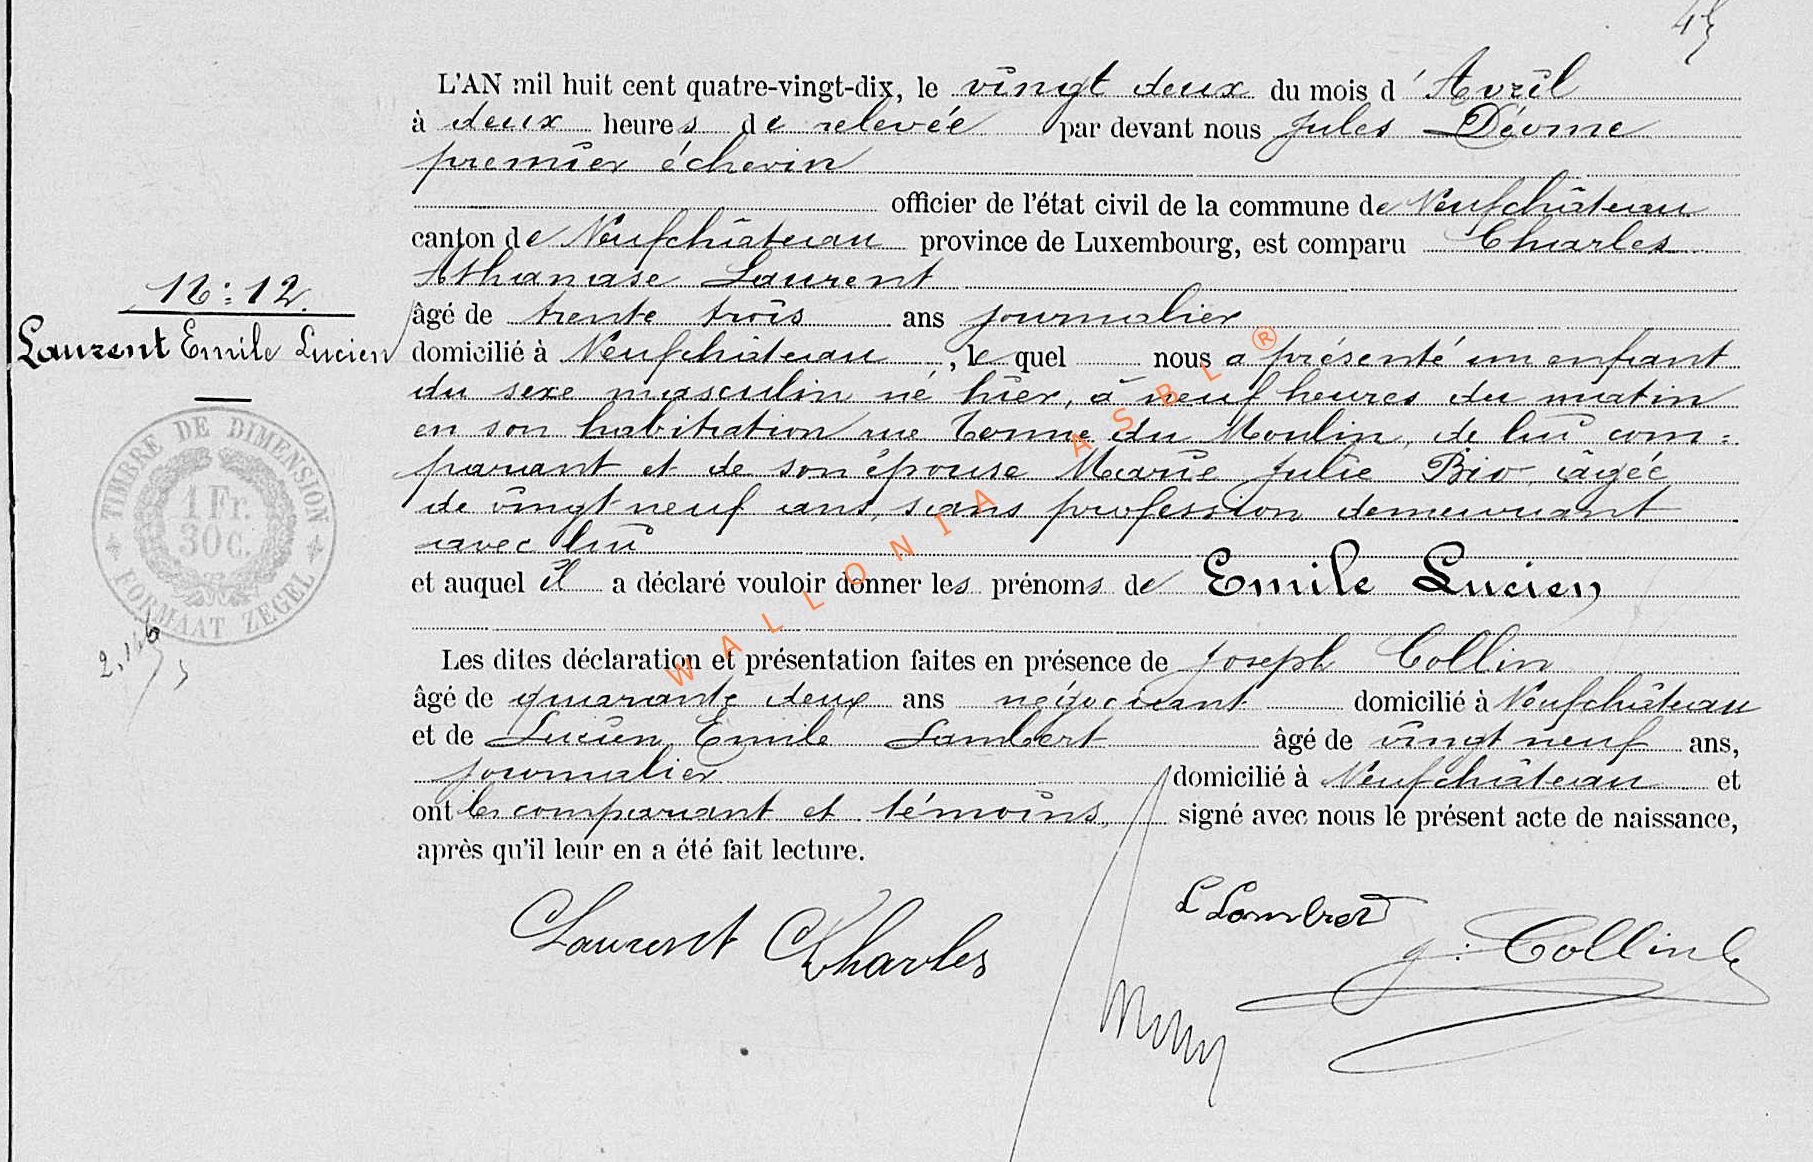 45
L'AN mil huit cent quatre-vingt-dix, le vingt deux du mois d' Avril
à deux heures de relevée par devant nous Jules Déome
premier échevin
officier de l'état civil de la commune de Neufchâteau
canton de Neufchâteau province de Luxembourg, est comparu Charles
Athanase Laurent
N: 12.
Laurent Emile Lucien
âgé de trente trois ans journalier
domicilié à Neufchâteau, le quel nous a présenté un enfant
du sexe masculin né hier, à neuf heures du matin
en son habitation rue Tenne du Moulin, de lui com=
parant et de son épouse Marie Julie Bio, âgée
de vingt neuf ans, sans profession demeurant
avec lui
et auquel il a déclaré vouloir donner les prénoms de Emile Lucien
TIMBRE DE DIMENSION
1 Fr.
30 c.
FORMAAT ZEGEL
Les dites déclaration et présentation faites en présence de Joseph Collin
âgé de quarante deux ans négociant domicilié à Neufchâteau
et de Lucien Emile Lambert âgé de vingt neuf ans,
journalier domicilié à Neufchâteau et
ont les comparant et témoins, signé avec nous le présent acte de naissance,
après qu'il leur en a été fait lecture.
Laurent Charles
L Lambert
J: Collin
WALLONIA ASBL ®